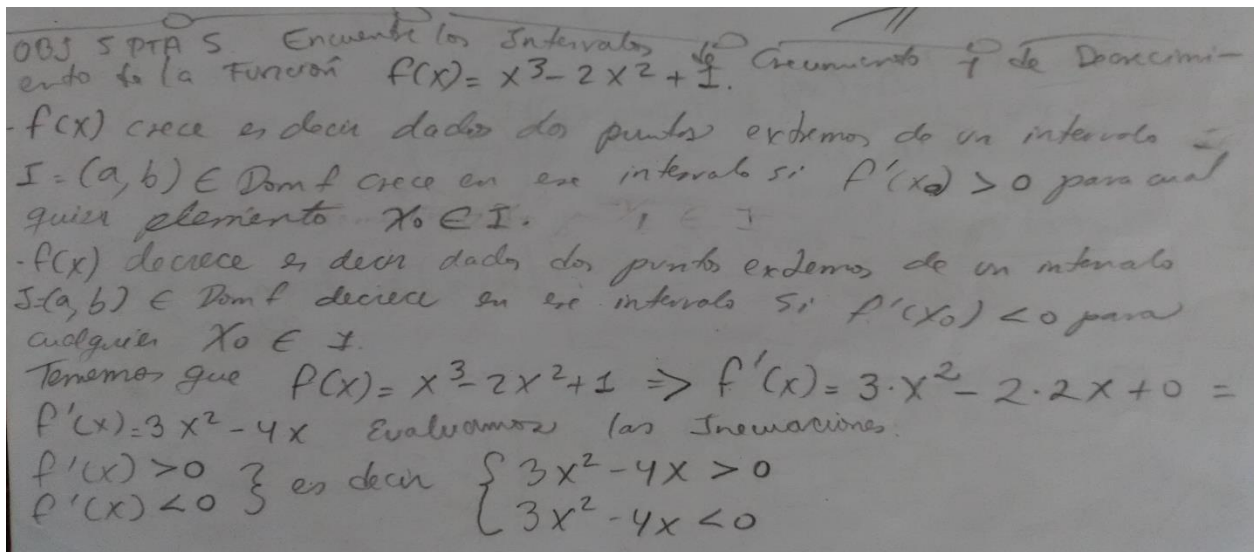 OBJ 5 PTA 5 Encuentre los Intervalos de Crecimiento y de Decrecimi-
ento de la Función f(x)= x³- 2x² + 1.
- f(x) crece es decir dados dos puntos extremos de un intervalo
I = (a, b) ∈ Dom f crece en ese intervalo si f'(x₀) > 0 para cual
quier elemento X₀ ∈ I.
- f(x) decrece es decir dados dos puntos extremos de un intervalo
I=(a, b) ∈ Dom f decrece en ese intervalo Si f'(X₀) < 0 para
cualquier X₀ ∈ I.
Tenemos que f(x) = x³-2x²+1 => f'(x) = 3·x²- 2·2x + 0 =
f'(x)=3x²-4x Evaluamos las Inecuaciones.
f'(x) >0 } es decir { 3x²-4x > 0
f'(x) <0 3x²-4x <0